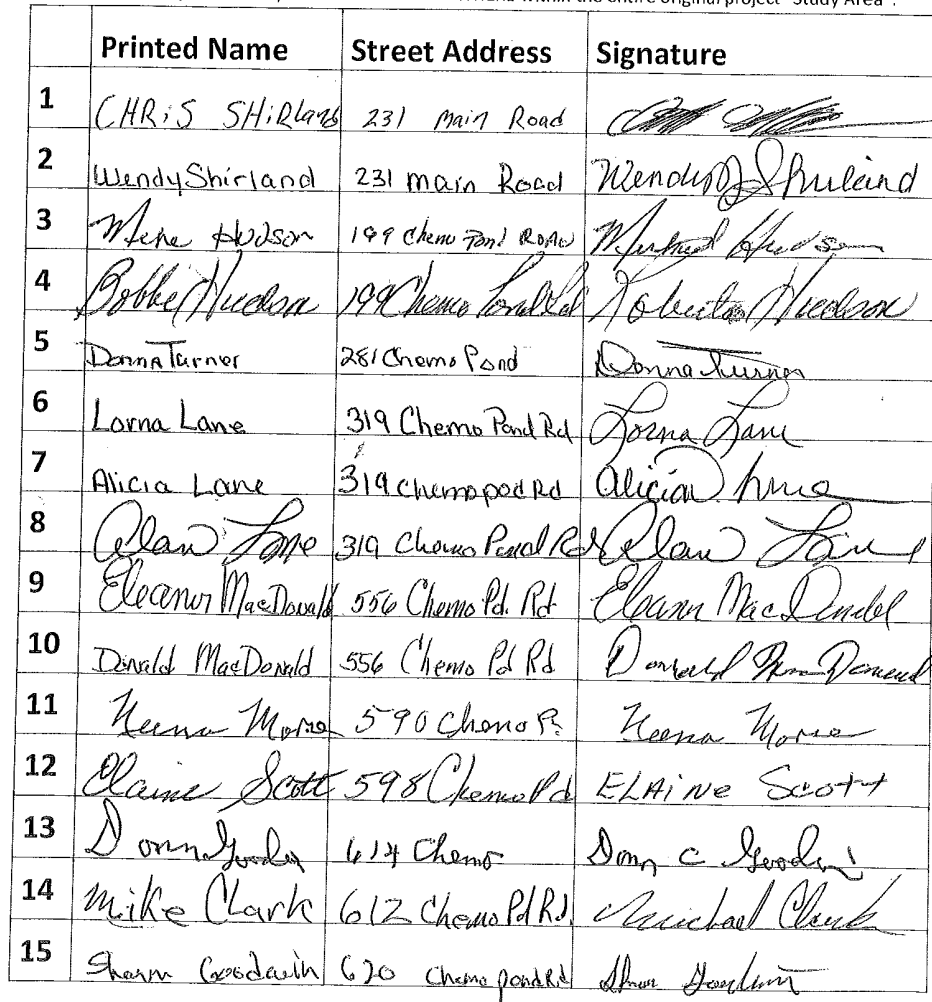 within the entire original project "Study Area".
Printed Name Street Address Signature
1 CHRiS SHiRland 231 Main Road
2 Wendy Shirland 231 main Road Wendy J Shirland
3 Mike Hudson 199 Chemo Pond ROAD Michael Hudson
4 Bobbie Hudson 199 Chemo Pond Rd Roberta Hudson
5 Donna Turner 281 Chemo Pond Donna Turner
6 Lorna Lane 319 Chemo Pond Rd Lorna Lane
7 Alicia Lane 319 chemo pod Rd Alicia
8 Alan Lane 319 Chemo Pond Rd Alan Lane
9 Eleanor MacDonald 556 Chemo Pd. Rd Eleanor MacDonald
10 Donald MacDonald 556 Chemo Pd Rd Donald
11 Neena Morse 590 Chemo P. Neena Morse
12 Elaine Scott 598 Chemo Pd ELAiNe Scott
13 614 Chemo C
14 Mike Clark 612 Chemo Pd Rd. Michael Clark
15 Goodwin 620 Chemo pond Rd Goodwin